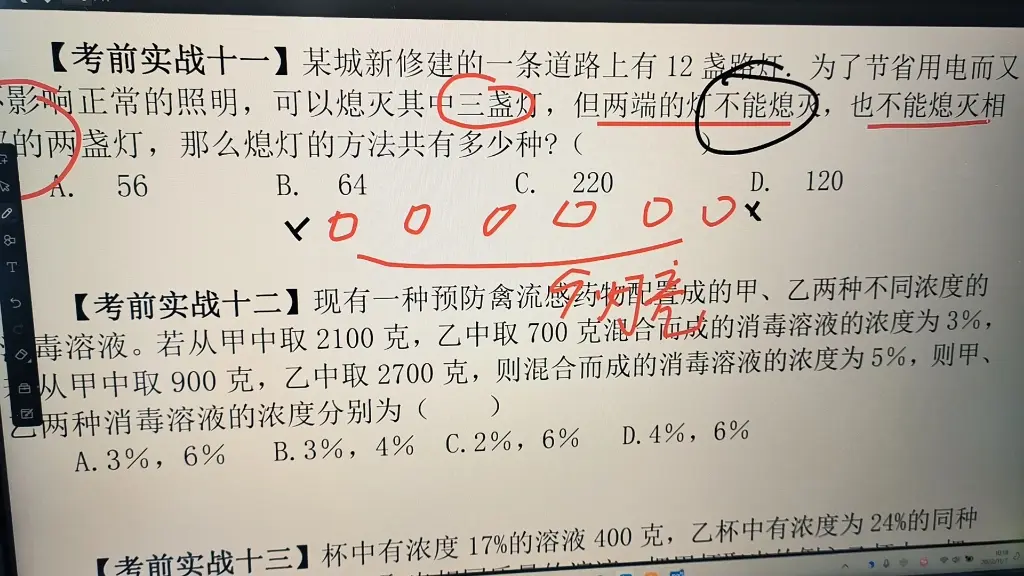 【考前实战十一】某城新修建的一条道路上有12盏路灯．为了节省用电而又
影响正常的照明，可以熄灭其中三盏灯，但两端的灯不能熄灭，也不能熄灭相
的两盏灯，那么熄灯的方法共有多少种?（　　）
A. 56 B. 64 C. 220 D. 120
9灯亮
【考前实战十二】现有一种预防禽流感药物配置成的甲、乙两种不同浓度的
毒溶液。若从甲中取2100克，乙中取700克混合而成的消毒溶液的浓度为3%，
从甲中取900克，乙中取2700克，则混合而成的消毒溶液的浓度为5%，则甲、
乙两种消毒溶液的浓度分别为（　　）
A.3%，6% B.3%，4% C.2%，6% D.4%，6%
【考前实战十三】杯中有浓度17%的溶液400克，乙杯中有浓度为24%的同种